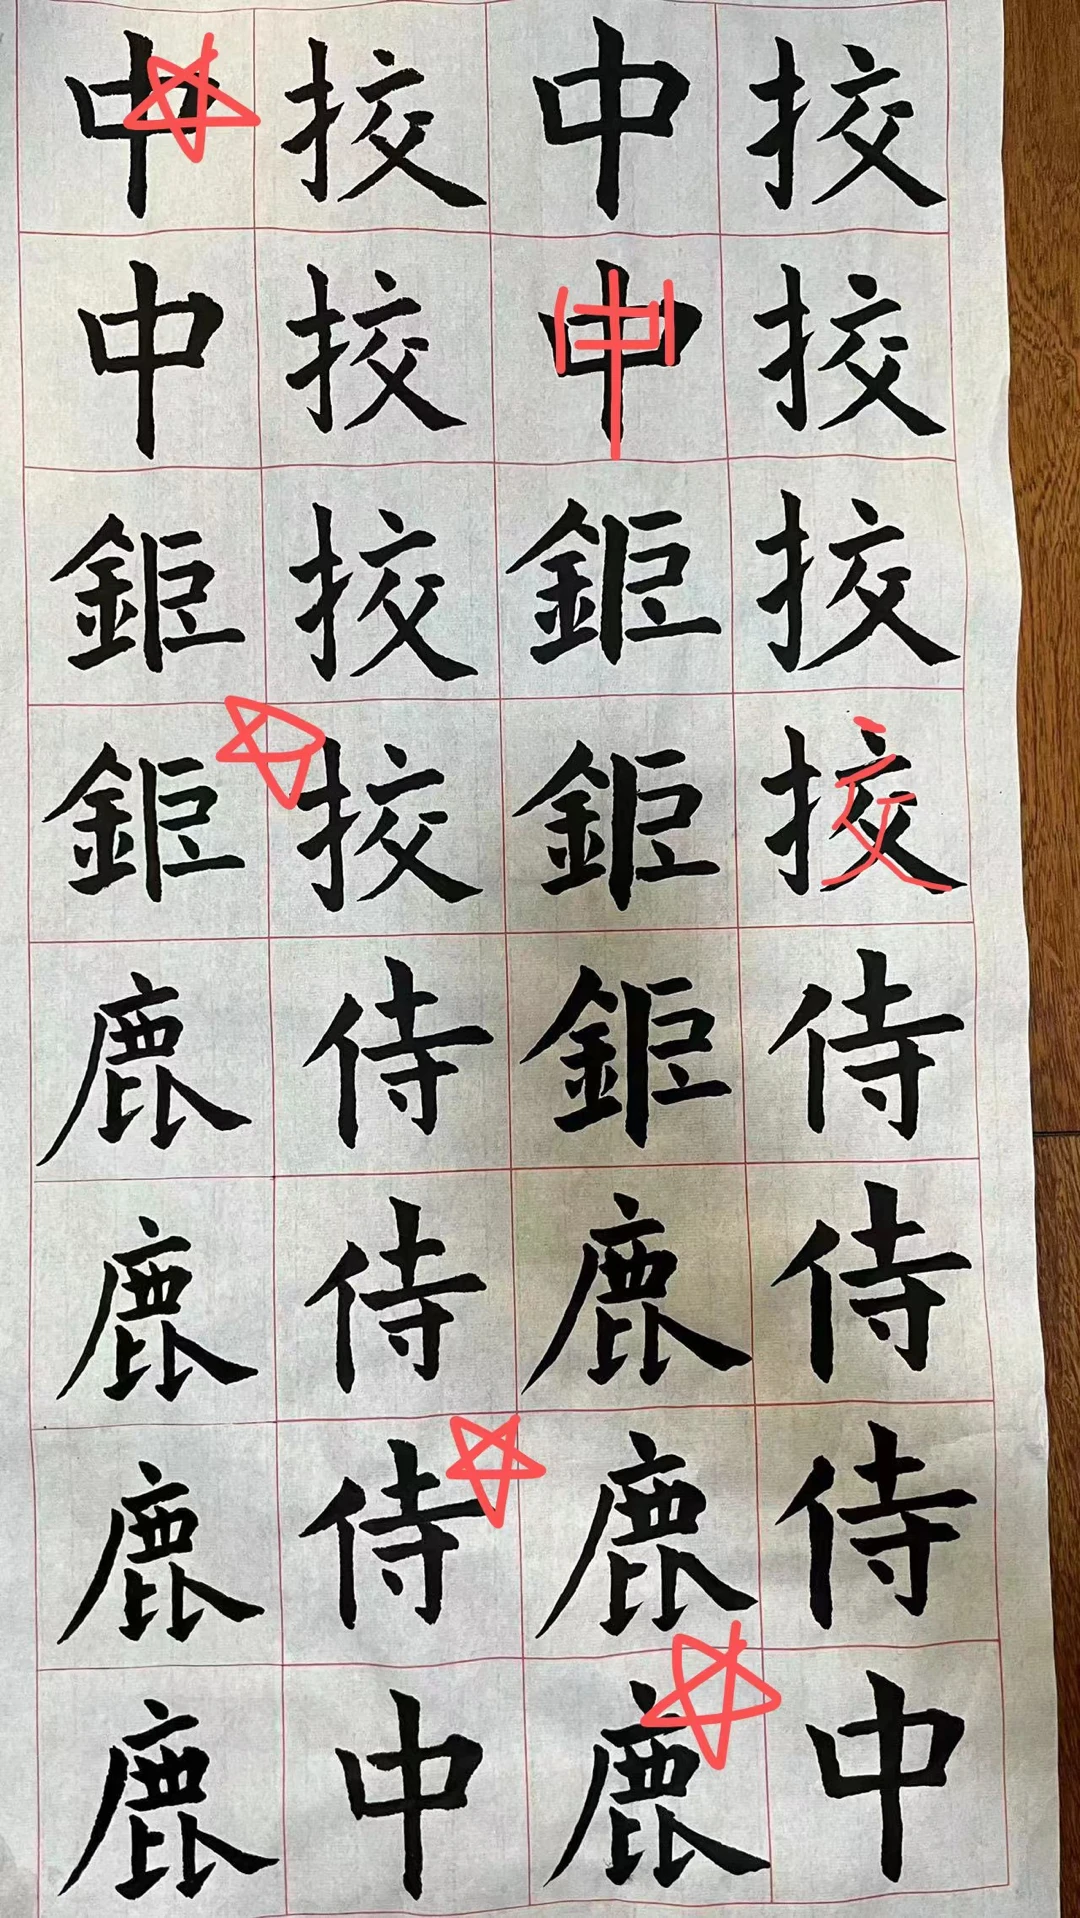 挍挍挍挍侍侍侍中
中中鉅鉅鉅鹿鹿鹿
挍挍挍挍侍侍侍中
中中鉅鉅鹿鹿鹿鹿